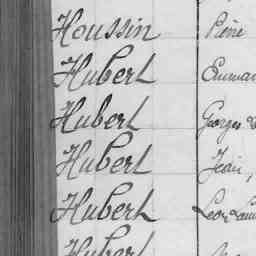 Houssin René
Hubert Emman
Hubert Georges
Hubert Jean,
Hubert Léon
Hubert